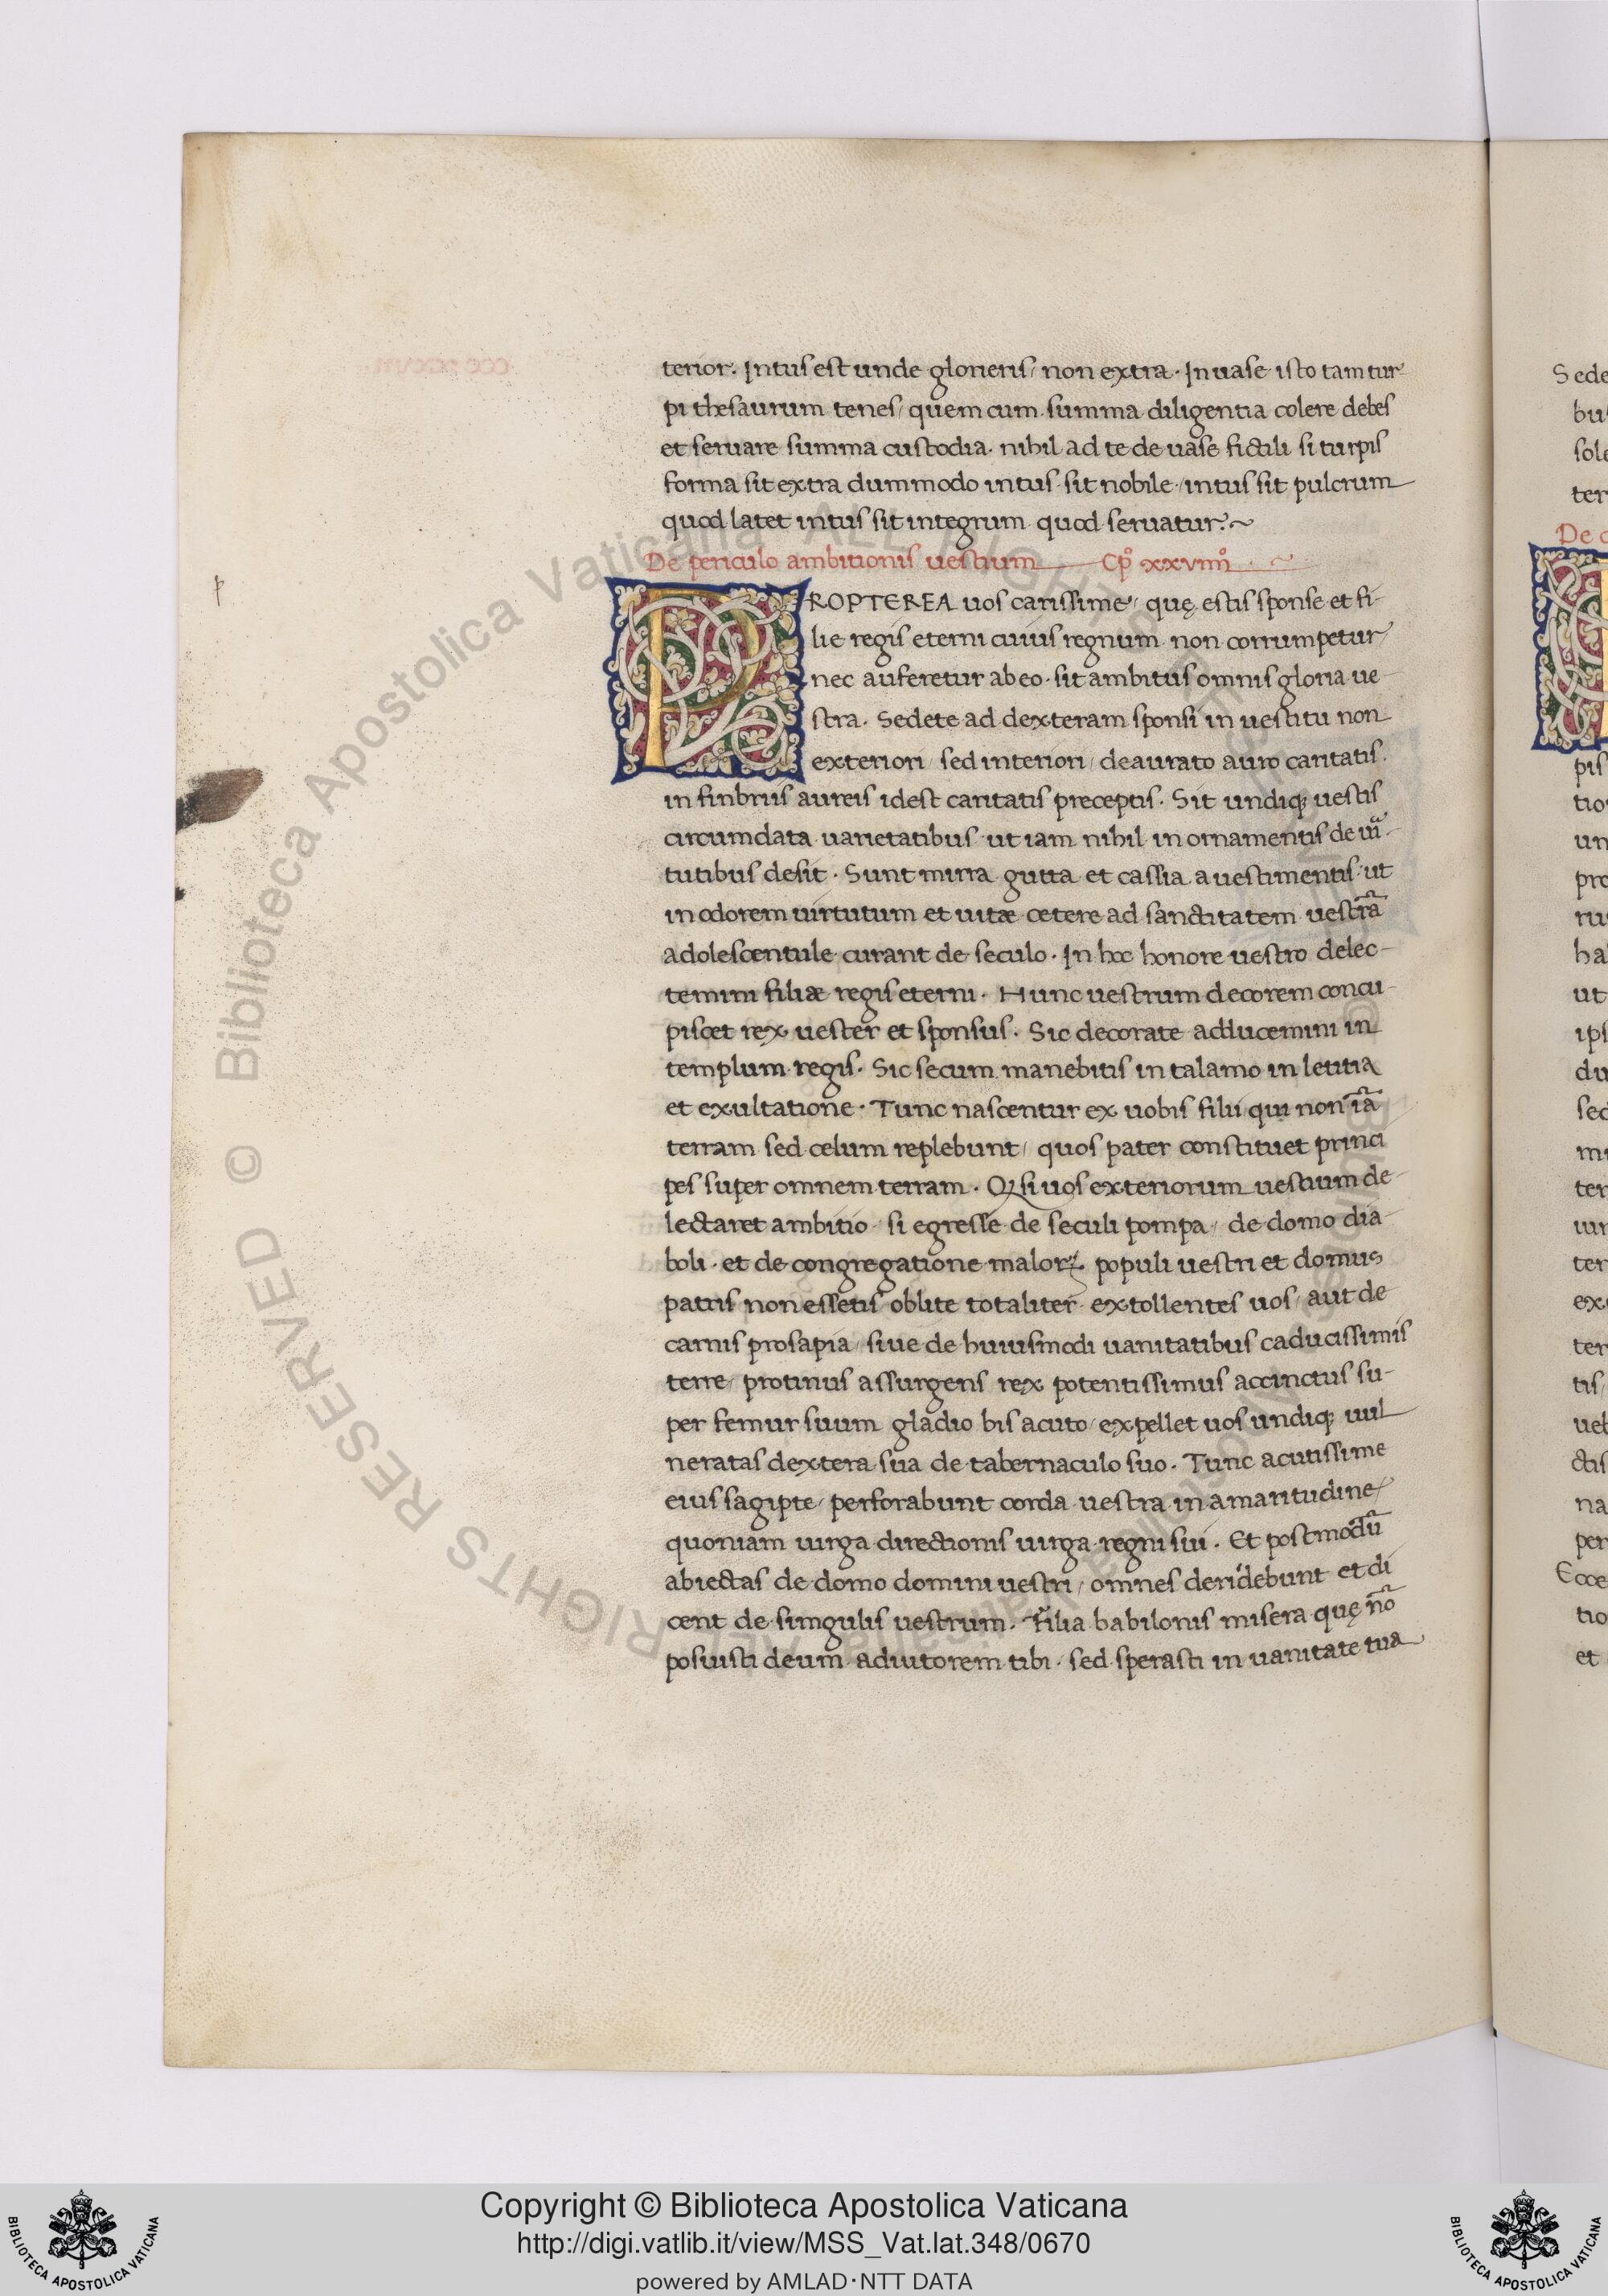 terior. Intus est unde glorieris, non extra. In uase isto tam tur
pi thesaurum tenes, quem cum summa diligentia colere debes
et seruare summa custodia. nihil ad te de uase fictili si turpis
forma sit extra dummodo intus sit nobile, intus sit pulcrum
quod latet intus sit integrum quod seruatur.~
De periculo ambitionis uestium Cp̊ xxviiii̊ ~
p
PROPTEREA uos carissime, quę estis sponse et fi
lie regis eterni cuius regnum non corrumpetur
nec auferetur ab eo. sit ambitus omnis gloria ue
stra. Sedete ad dexteram sponsi in uestitu non
exteriori, sed interiori, deaurato auro caritatis.
in finbriis aureis idest caritatis preceptis. Sit undiq; uestis
circumdata uarietatibus ut iam nihil in ornamentis de uir̃
tutibus desit. Sunt mirra gutta et cassia a uestimentis: ut
in odorem uirtutum et uitæ cetere ad sanctitatem uestrã
adolescentule currant de seculo. In hoc honore uestro delec-
temini filiæ regis eterni. Hunc uestrum decorem concu-
piscet rex uester et sponsus. Sic decorate adducemini in
templum regis. Sic secum manebitis in talamo in letitia
et exultatione. Tunc nascentur ex uobis filii qui non iã
terram sed celum replebunt, quos pater constituet princi
pes super omnem terram. Q; si uos exteriorum uestium de
lectaret ambitio, si egresse de seculi pompa, de domo dia
boli. et de congregatione malorꝝ populi uestri et domus
patris non essetis oblite totaliter extollentes uos, aut de
carnis prosapia, siue de huiusmodi uanitatibus caducissimis
terre, protinus assurgens rex potentissimus accinctus su-
per femur suum gladio bis acuto, expellet uos undiq; uul
neratas dextera sua de tabernaculo suo. Tunc acutissime
eius sagipte, perforabunt corda uestra in amaritudine,
quoniam uirga directionis uirga regni sui. Et postmodũ
abiectas de domo domini uestri, omnes deridebunt et di
cent de simgulis uestrum. Filia babilonis misera quę nõ
posuisti deum adiutorem tibi. sed sperasti in uanitate tua
Sede
bus
sole
ter
De
pis
tio
un
pro
ru
ha
ut
ips
du
sed
mi
ter
uir
ter
ex
ter
tis
ueb
ctis
na
per
Ecce
tio
et
Biblioteca Apostolica Vaticana ALL RIGHTS RESERVED ©
Copyright © Biblioteca Apostolica Vaticana
http://digi.vatlib.it/view/MSS_Vat.lat.348/0670
powered by AMLAD·NTT DATA
BIBLIOTECA APOSTOLICA VATICANA
BIBLIOTECA APOSTOLICA VATICANA